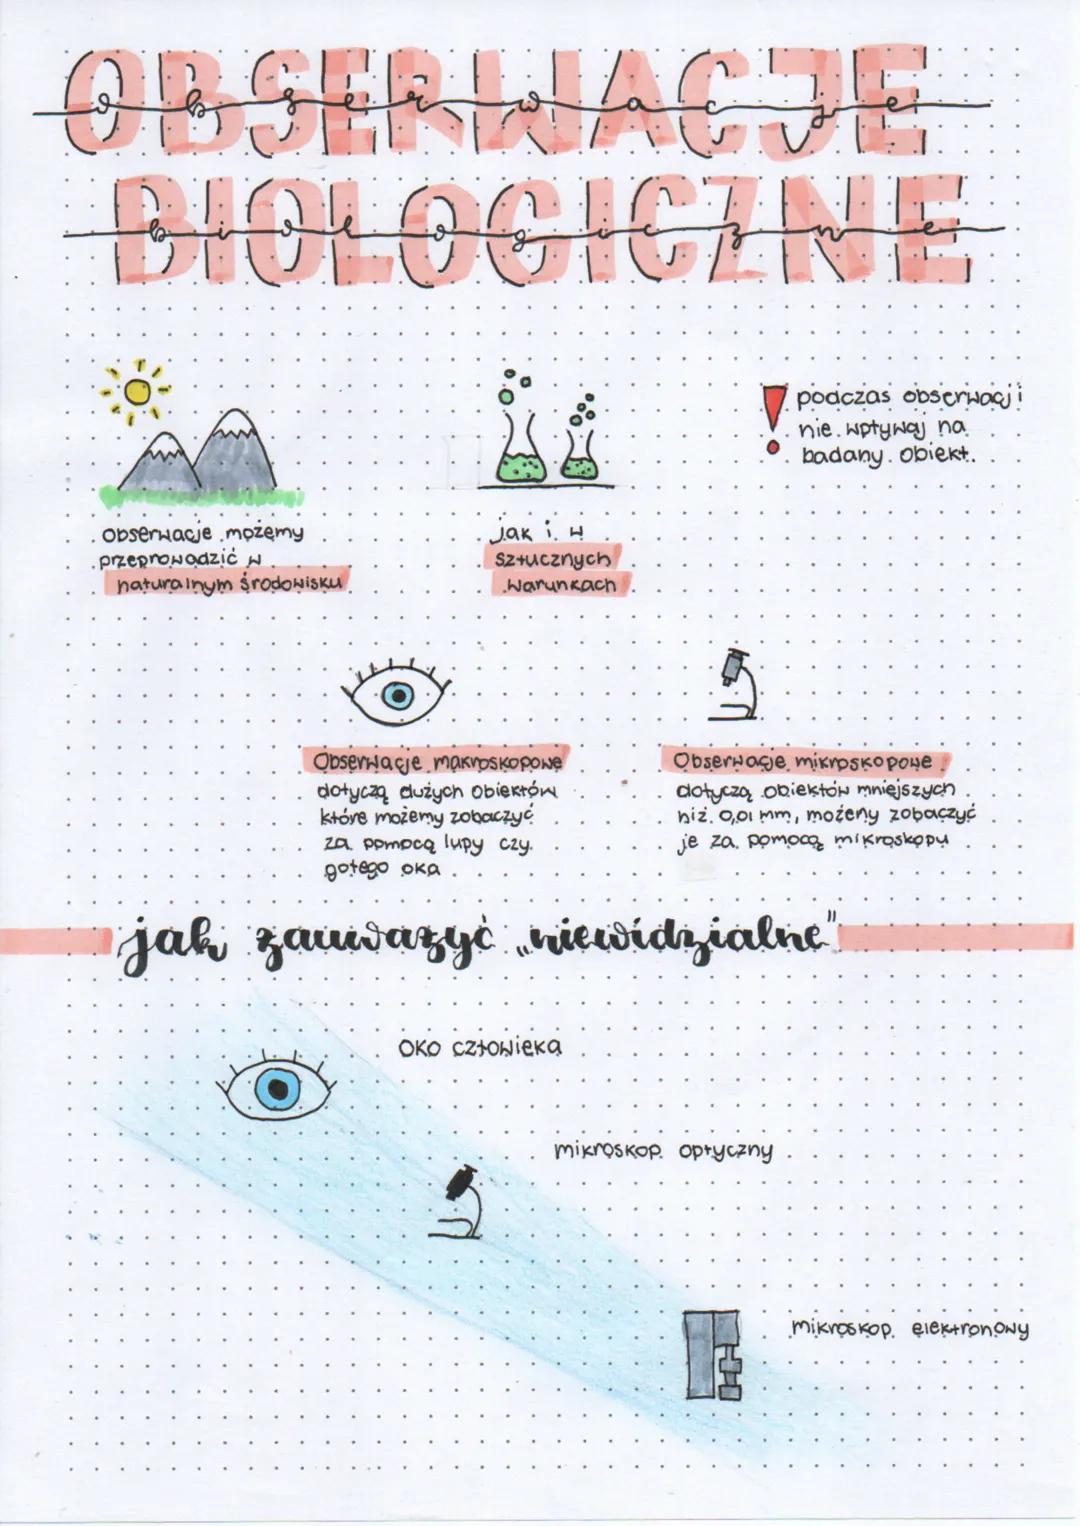 OBSERWACJE
obserwacje
BIOLOGICZNE
biologiczne
obserwacje możemy
przeprowadzić w
naturalnym środowisku
jak i w
sztucznych
warunkach
podczas obserwacji
nie wpływaj na
badany obiekt.
Obserwacje makroskopowe
dotyczą dużych obiektów
które możemy zobaczyć
za pomocą lupy czy
gołego oka
Obserwacje mikroskopowe
dotyczą obiektów mniejszych
niż 0,01 mm, możemy zobaczyć
je za pomocą mikroskopu
jak zauważyć „niewidzialne"
oko człowieka
mikroskop optyczny
mikroskop elektronowy